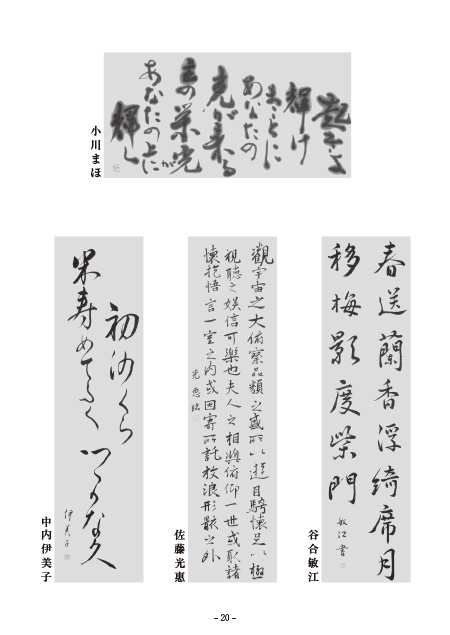 起きよ
輝け
まことに
あなたの
光が来る
主の栄光が
あなたの上に
輝く
小川まほ
春送蘭香浮綺席月
移梅影度柴門
敏江書
谷合敏江
觀宇宙之大俯察品類之盛所以遊目騁懐足以極
視聽之娯信可樂也夫人之相與俯仰一世或取諸
懐抱悟言一室之内或因寄所託放浪形骸之外
光恵臨
佐藤光惠
初沙くら
米寿めてたく
伊美子
中内伊美子
- 20 -